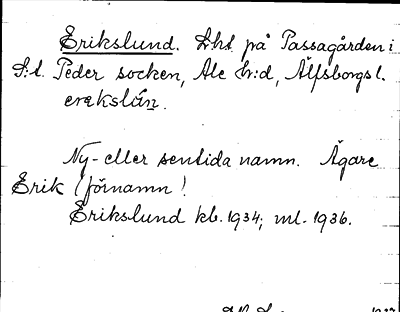 Erikslund. Lht på Passagården i
S:t Peder socken, Ale h:d, Älfsborgs l.
erikslún.
Ny- eller sentida namn. Ägare
Erik (förnamn!
Erikslund kb. 1934; ml. 1936.